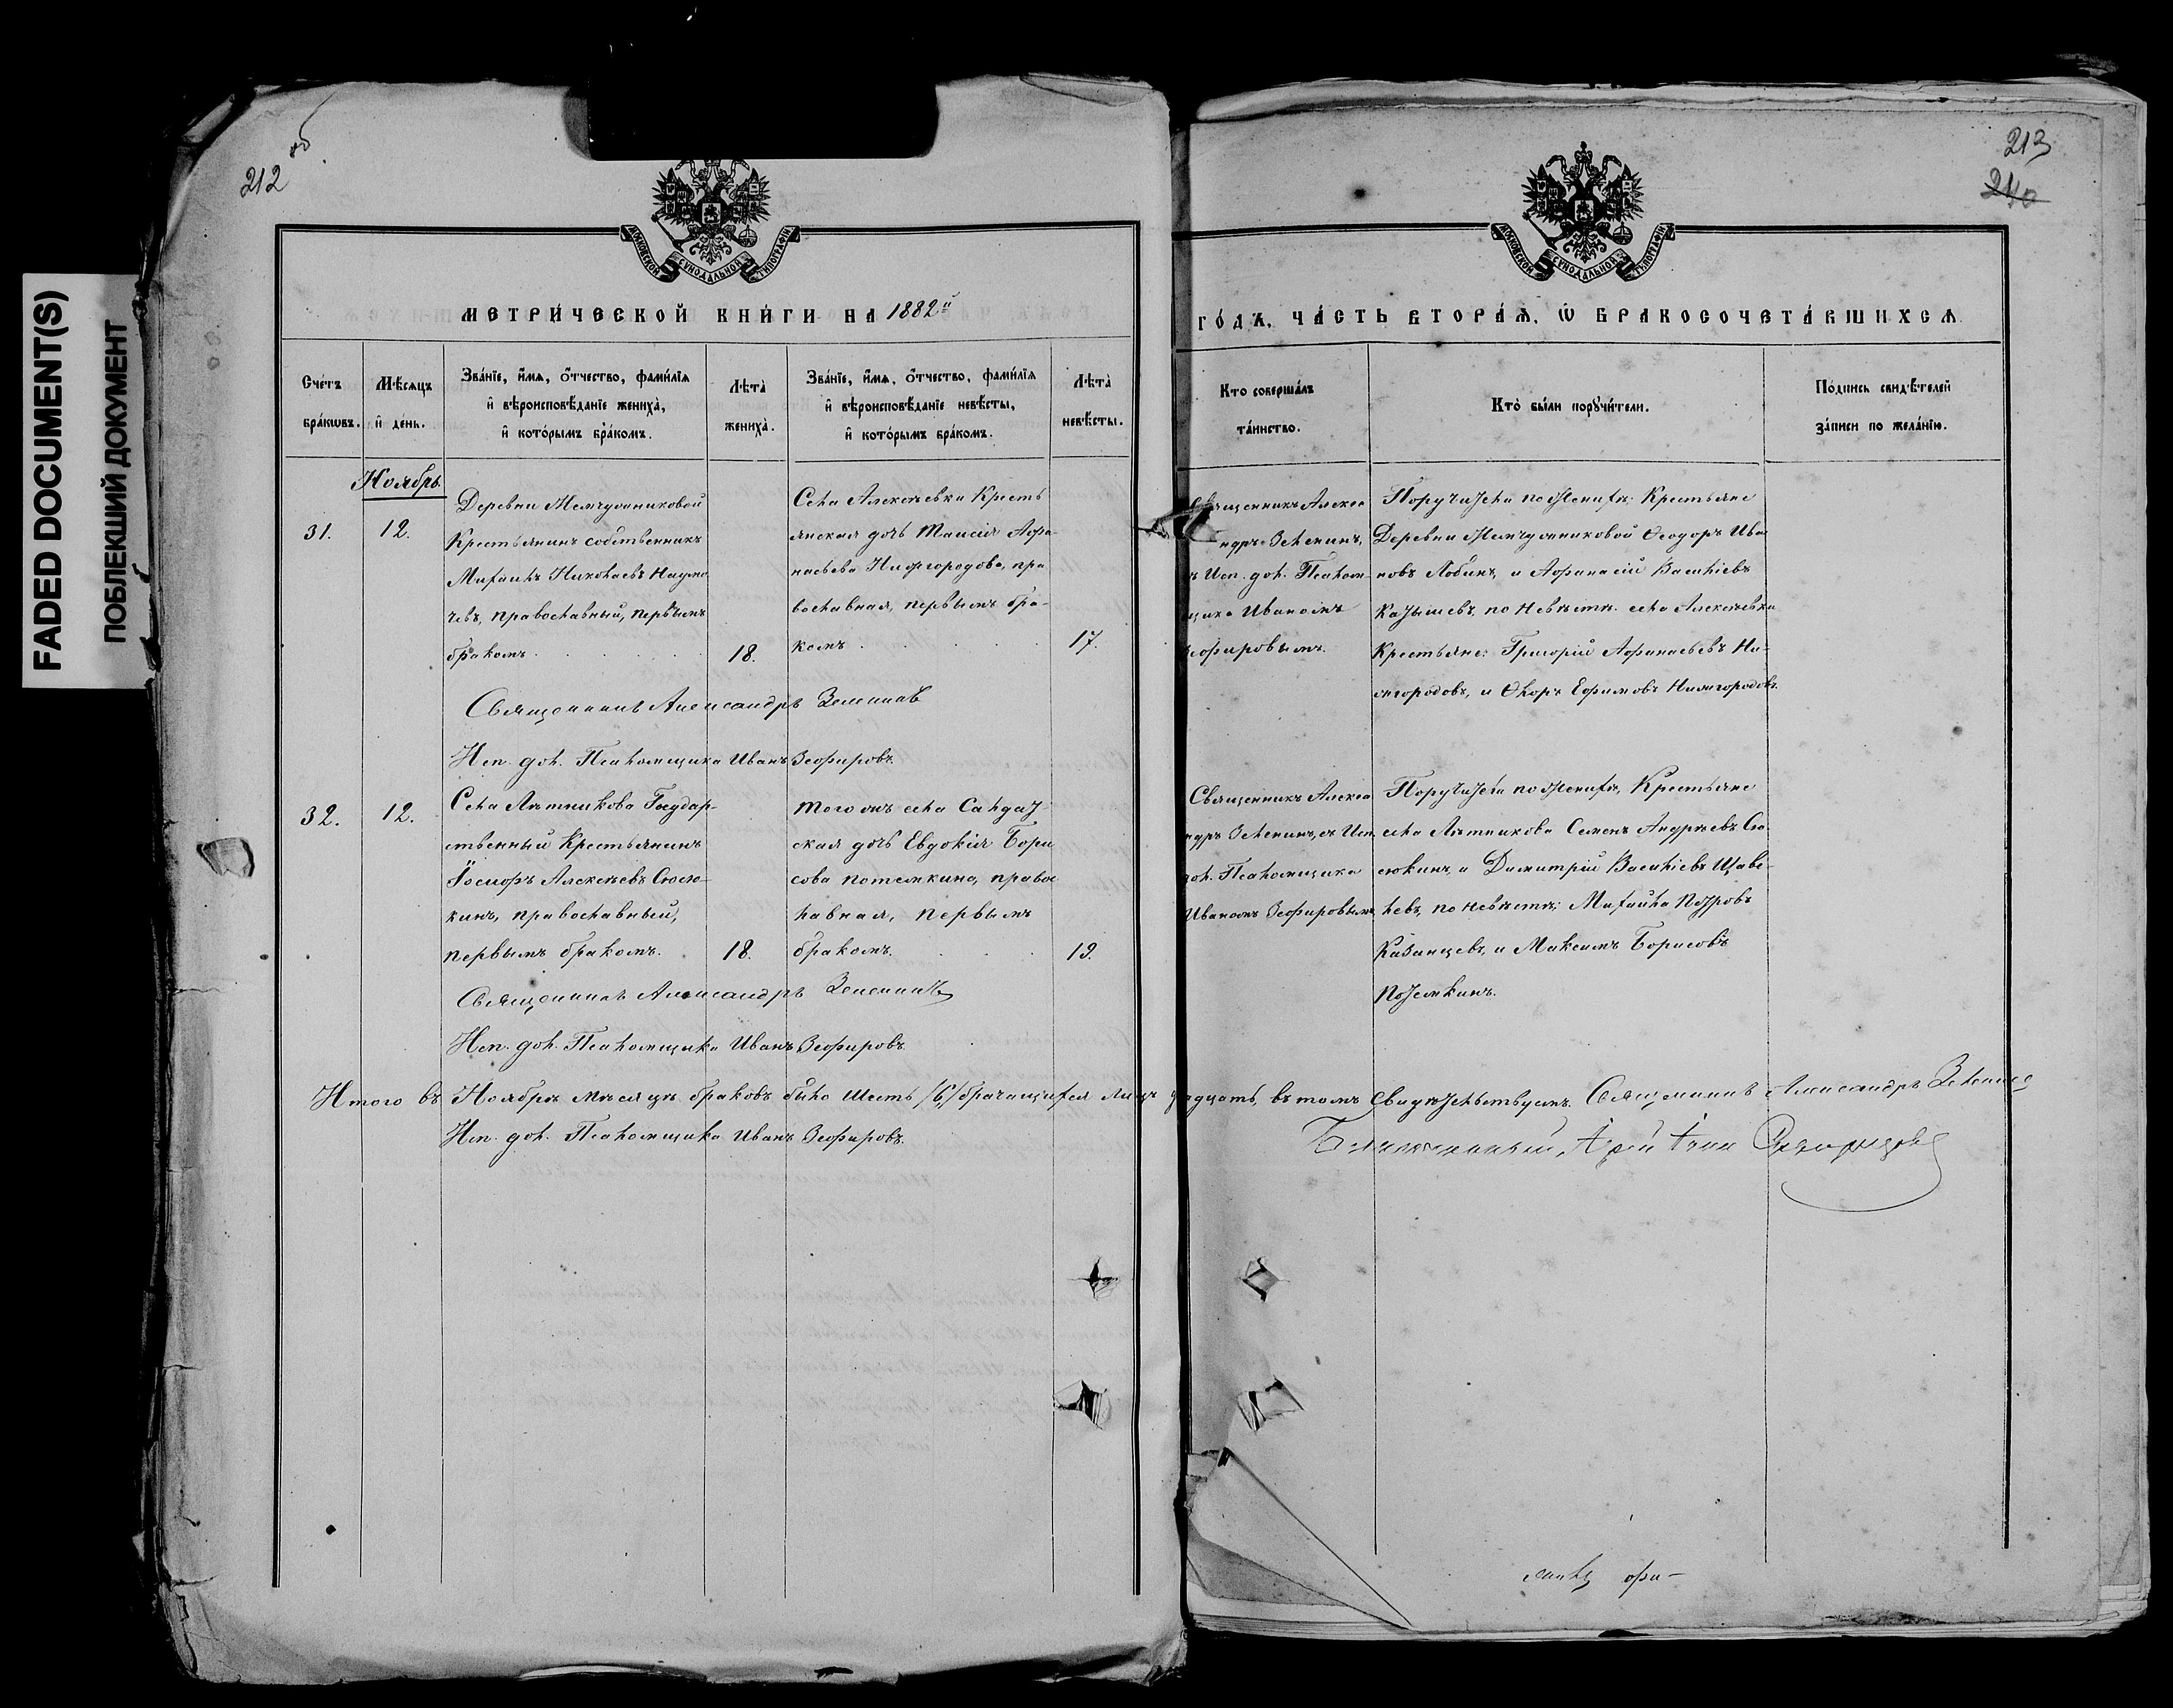 FADED DOCUMENT(S)
ПОБЛЕКШИЙ ДОКУМЕНТ
212 об
МОСКОВСКОЙ СѴНОДАЛЬНОЙ ТИПОГРАФІИ
МЕТРИ́ЧЕСКОЙ КНИ́ГИ НА 1882й
Сче́тъ бра́кѡвъ.
Мѣ́сяцъ и҆ де́нь.
Зва́нїе, и҆́мѧ, о҆́тчество, фами́лїѧ
и҆ вѣроисповѣ́данїе жениха̀,
и҆ кото́рымъ бра́комъ.
Лѣта̀ жениха̀.
Зва́нїе, и҆́мѧ, о҆́тчество, фами́лїѧ
и҆ вѣроисповѣ́данїе невѣ́сты,
и҆ кото́рымъ бра́комъ.
Лѣта̀ невѣ́сты.
Ноябрь
31.
12.
Деревни Жемчужниковой
Крестьянинъ собственникъ
Михаилъ Николаевъ Наумо
чевъ, православный, первымъ
бракомъ
18.
Села Алексѣевки Кресть
янская дочь Таисія Афа-
насьева Нижгородова, пра
вославная, первымъ бра-
комъ
17.
Священникъ Александръ Зеленинъ
Исп. дол. Псаломщика Иванъ Зефировъ
32.
12.
Села Лѣтникова Государ-
ственный Крестьянинъ
Алексѣевъ Сюсю-
кинъ, православный,
первымъ бракомъ.
18.
Того жъ села Солдат
ская дочь Евдокія Бори
сова Потемкина, правос
лавная, первымъ
бракомъ.
19.
Священникъ Александръ Зеленинъ
Исп. дол. Псаломщика Иванъ Зефировъ
Итого въ Ноябрѣ мѣсяцѣ браковъ было шесть /6/ брачащихся лицъ
Исп. дол. Псаломщика Иванъ Зефировъ.
213
240
МОСКОВСКОЙ СѴНОДАЛЬНОЙ ТИПОГРАФІИ
ГО́ДЪ, ЧА́СТЬ ВТОРА́Ѧ, Ѡ БРАКОСОЧЕТА́ВШИХСѦ
Кто̀ соверша́лъ та́инство.
Кто̀ бы́ли порꙋчи́тели.
По́дпись свидѣ́телей за́писи по жела́нїю.
Священникъ Алекса
ндръ Зеленинъ,
съ Исп. дол. Псалом-
щика Иваномъ
Зефировымъ.
Поручители по женихѣ: Крестьяне
Деревни Жемчужниковой Ѳеодоръ Ива
новъ Лобинъ, и Афанасій Васильевъ
по невѣстѣ: села Алексѣевки
Крестьяне: Григорій Афанасьевъ Ни-
жгородовъ, и Ѳлоръ Ефимовъ Нижгородовъ
Священникъ Алекса
ндръ Зеленинъ, съ Исп.
дол. Псаломщика
Иваномъ Зефировымъ
Поручители по женихѣ, Крестьяне
села Лѣтникова Семенъ Андреевъ Сю-
сюкинъ, и Димитрій Васильевъ Щаве-
левъ, по невѣстѣ: Михаилъ Петровъ
Казанцевъ, и Максимъ Борисовъ
Потемкинъ.
двѣнадцать, въ томъ свидѣтельствуемъ. Священникъ Александръ Зеленинъ
Благочинный, Іерей